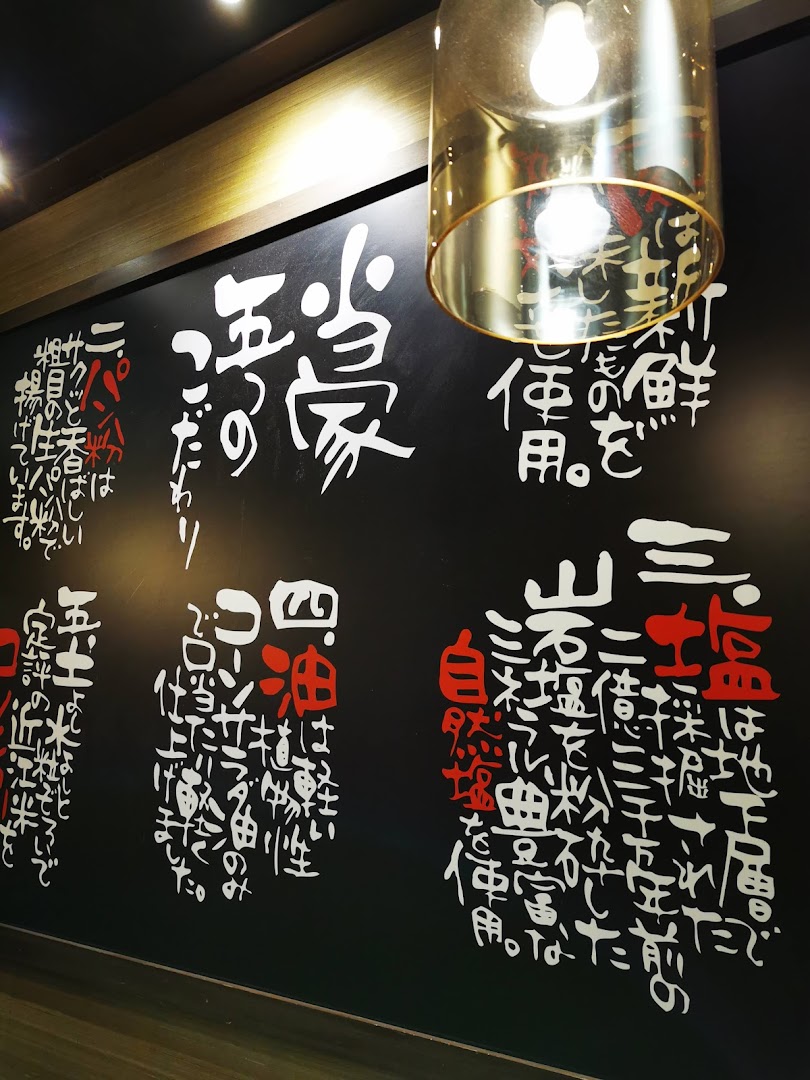 は新鮮
味したものを
使用。
当家
五つの
こだわり
二.パン粉は
サクッと香ばしい
粗目の生パン粉で
揚げています。
三.塩は地下層で
採掘された
二億三千万年前の
岩塩を粉砕した
ミネラル豊富な
自然塩を使用。
四.油は軽い
植物性
コーンサラダ油のみ
で口当たり軽く
仕上げました。
五.土よし水よしと
粒ぞろいで
定評の近江米
を